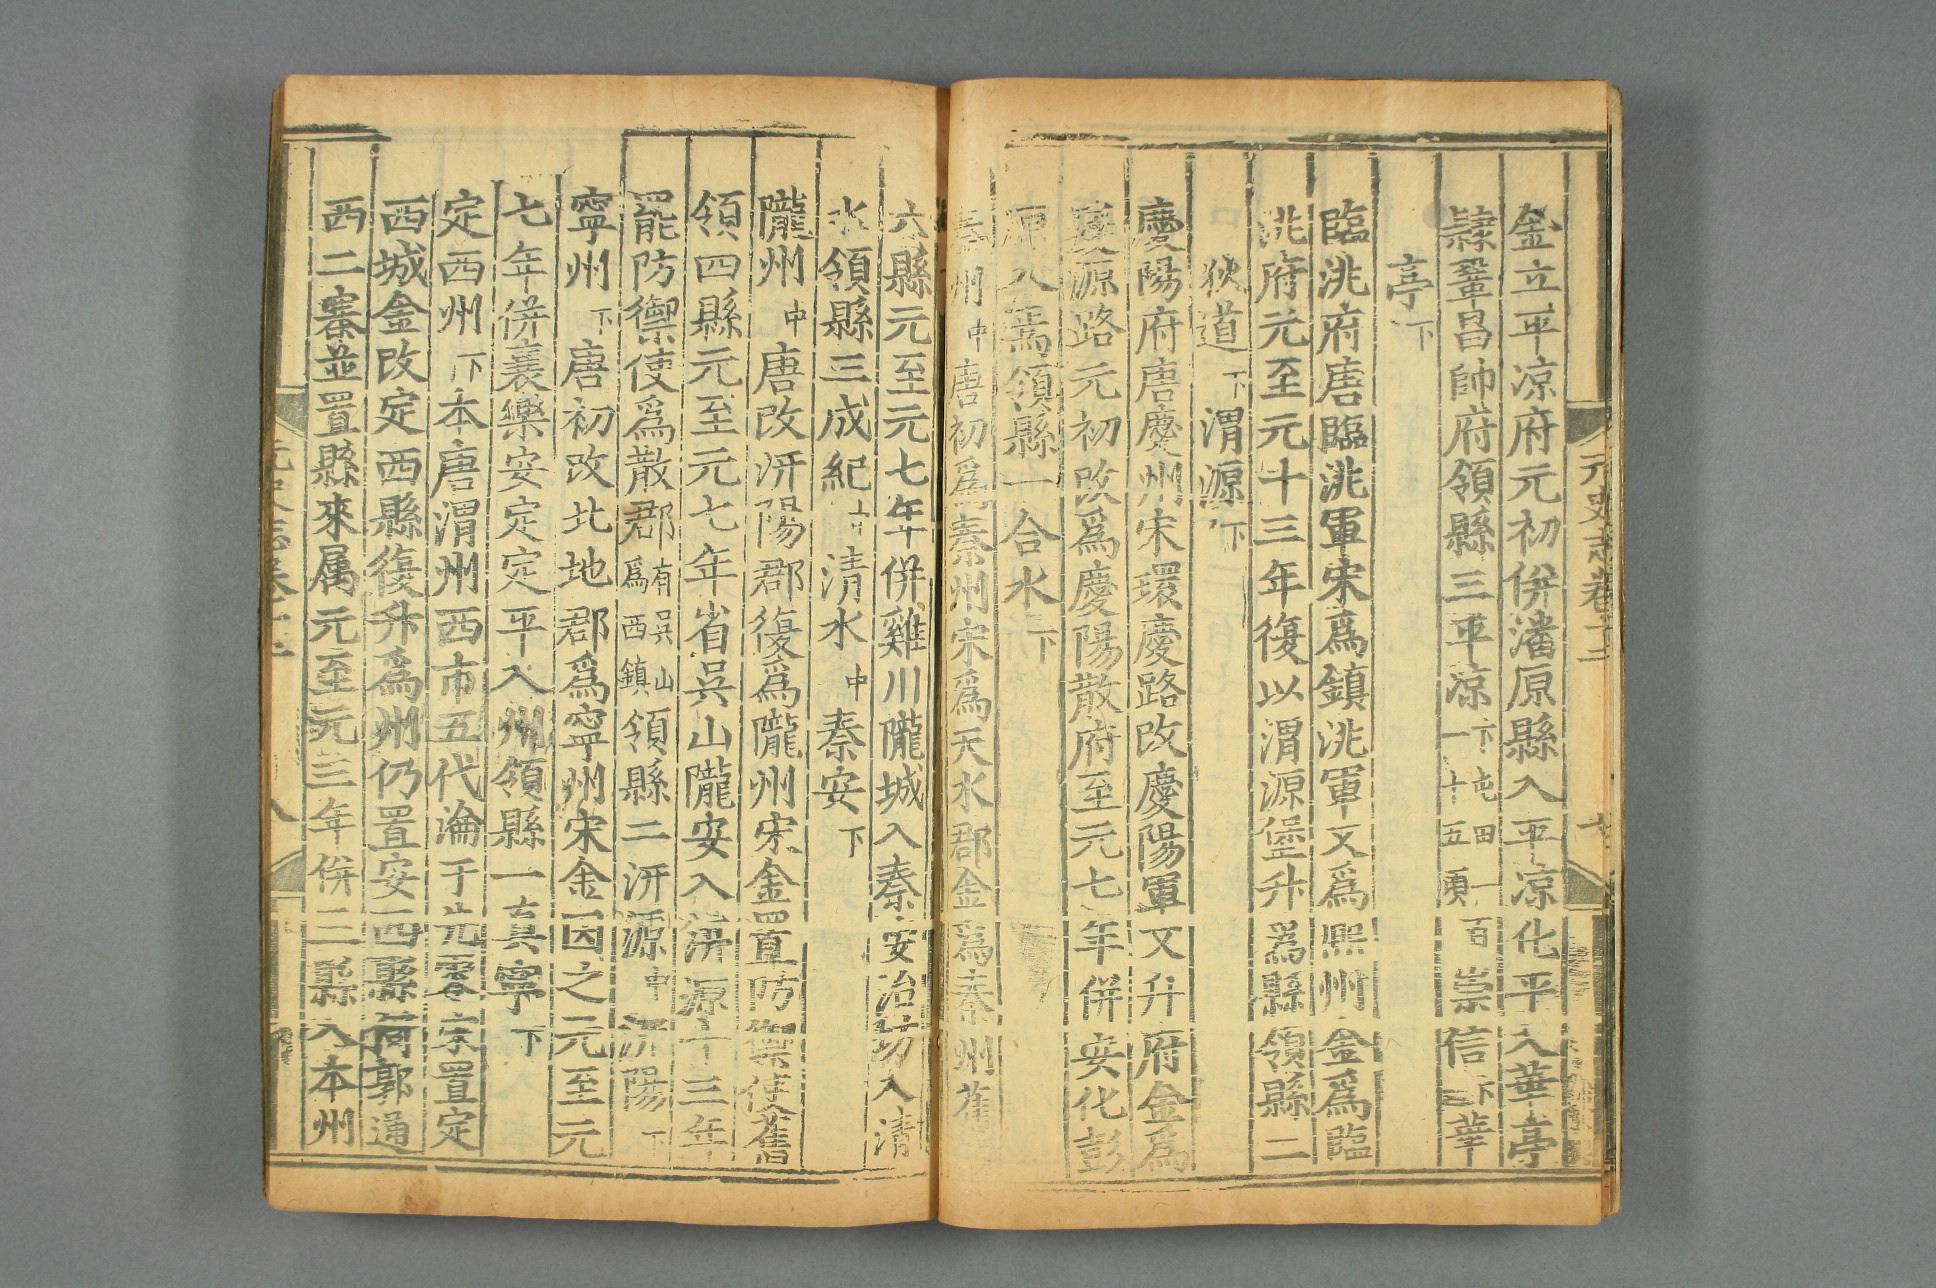 元史志卷十二
金立平凉府元初併潘原縣入平凉化平入華亭
隷鞏昌帥府領縣三平凉下屯田一百一十五頃崇信下華
亭下
臨洮府唐臨洮軍宋爲鎮洮軍又爲熈州金爲臨
洮府元至元十三年復以渭源堡升爲縣領縣二
狄道下渭源下
慶陽府唐慶州宋環慶路改慶陽軍又升府金爲
慶源路元初改爲慶陽散府至元七年併安化彭
原入焉領縣一合水下
秦州中唐初爲秦州宋爲天水郡金爲秦州舊
六縣元至元七年併雞川隴城入秦安治坊入清
水領縣三成紀中清水中秦安下
隴州中唐改汧陽郡復爲隴州宋金置防禦使舊
領四縣元至元七年省吳山隴安入汧源十三年
罷防禦使爲散郡有吳山爲西鎮領縣二汧源中汧陽下
寧州下唐初改北地郡爲寧州宋金因之元至元
七年併襄樂安定定平入州領縣一真寧下
定西州下本唐渭州西市五代淪于先零宋置定
西城金改定西縣復升爲州仍置安西縣倚郭通
西二寨並置縣來属元至元三年併三縣入本州